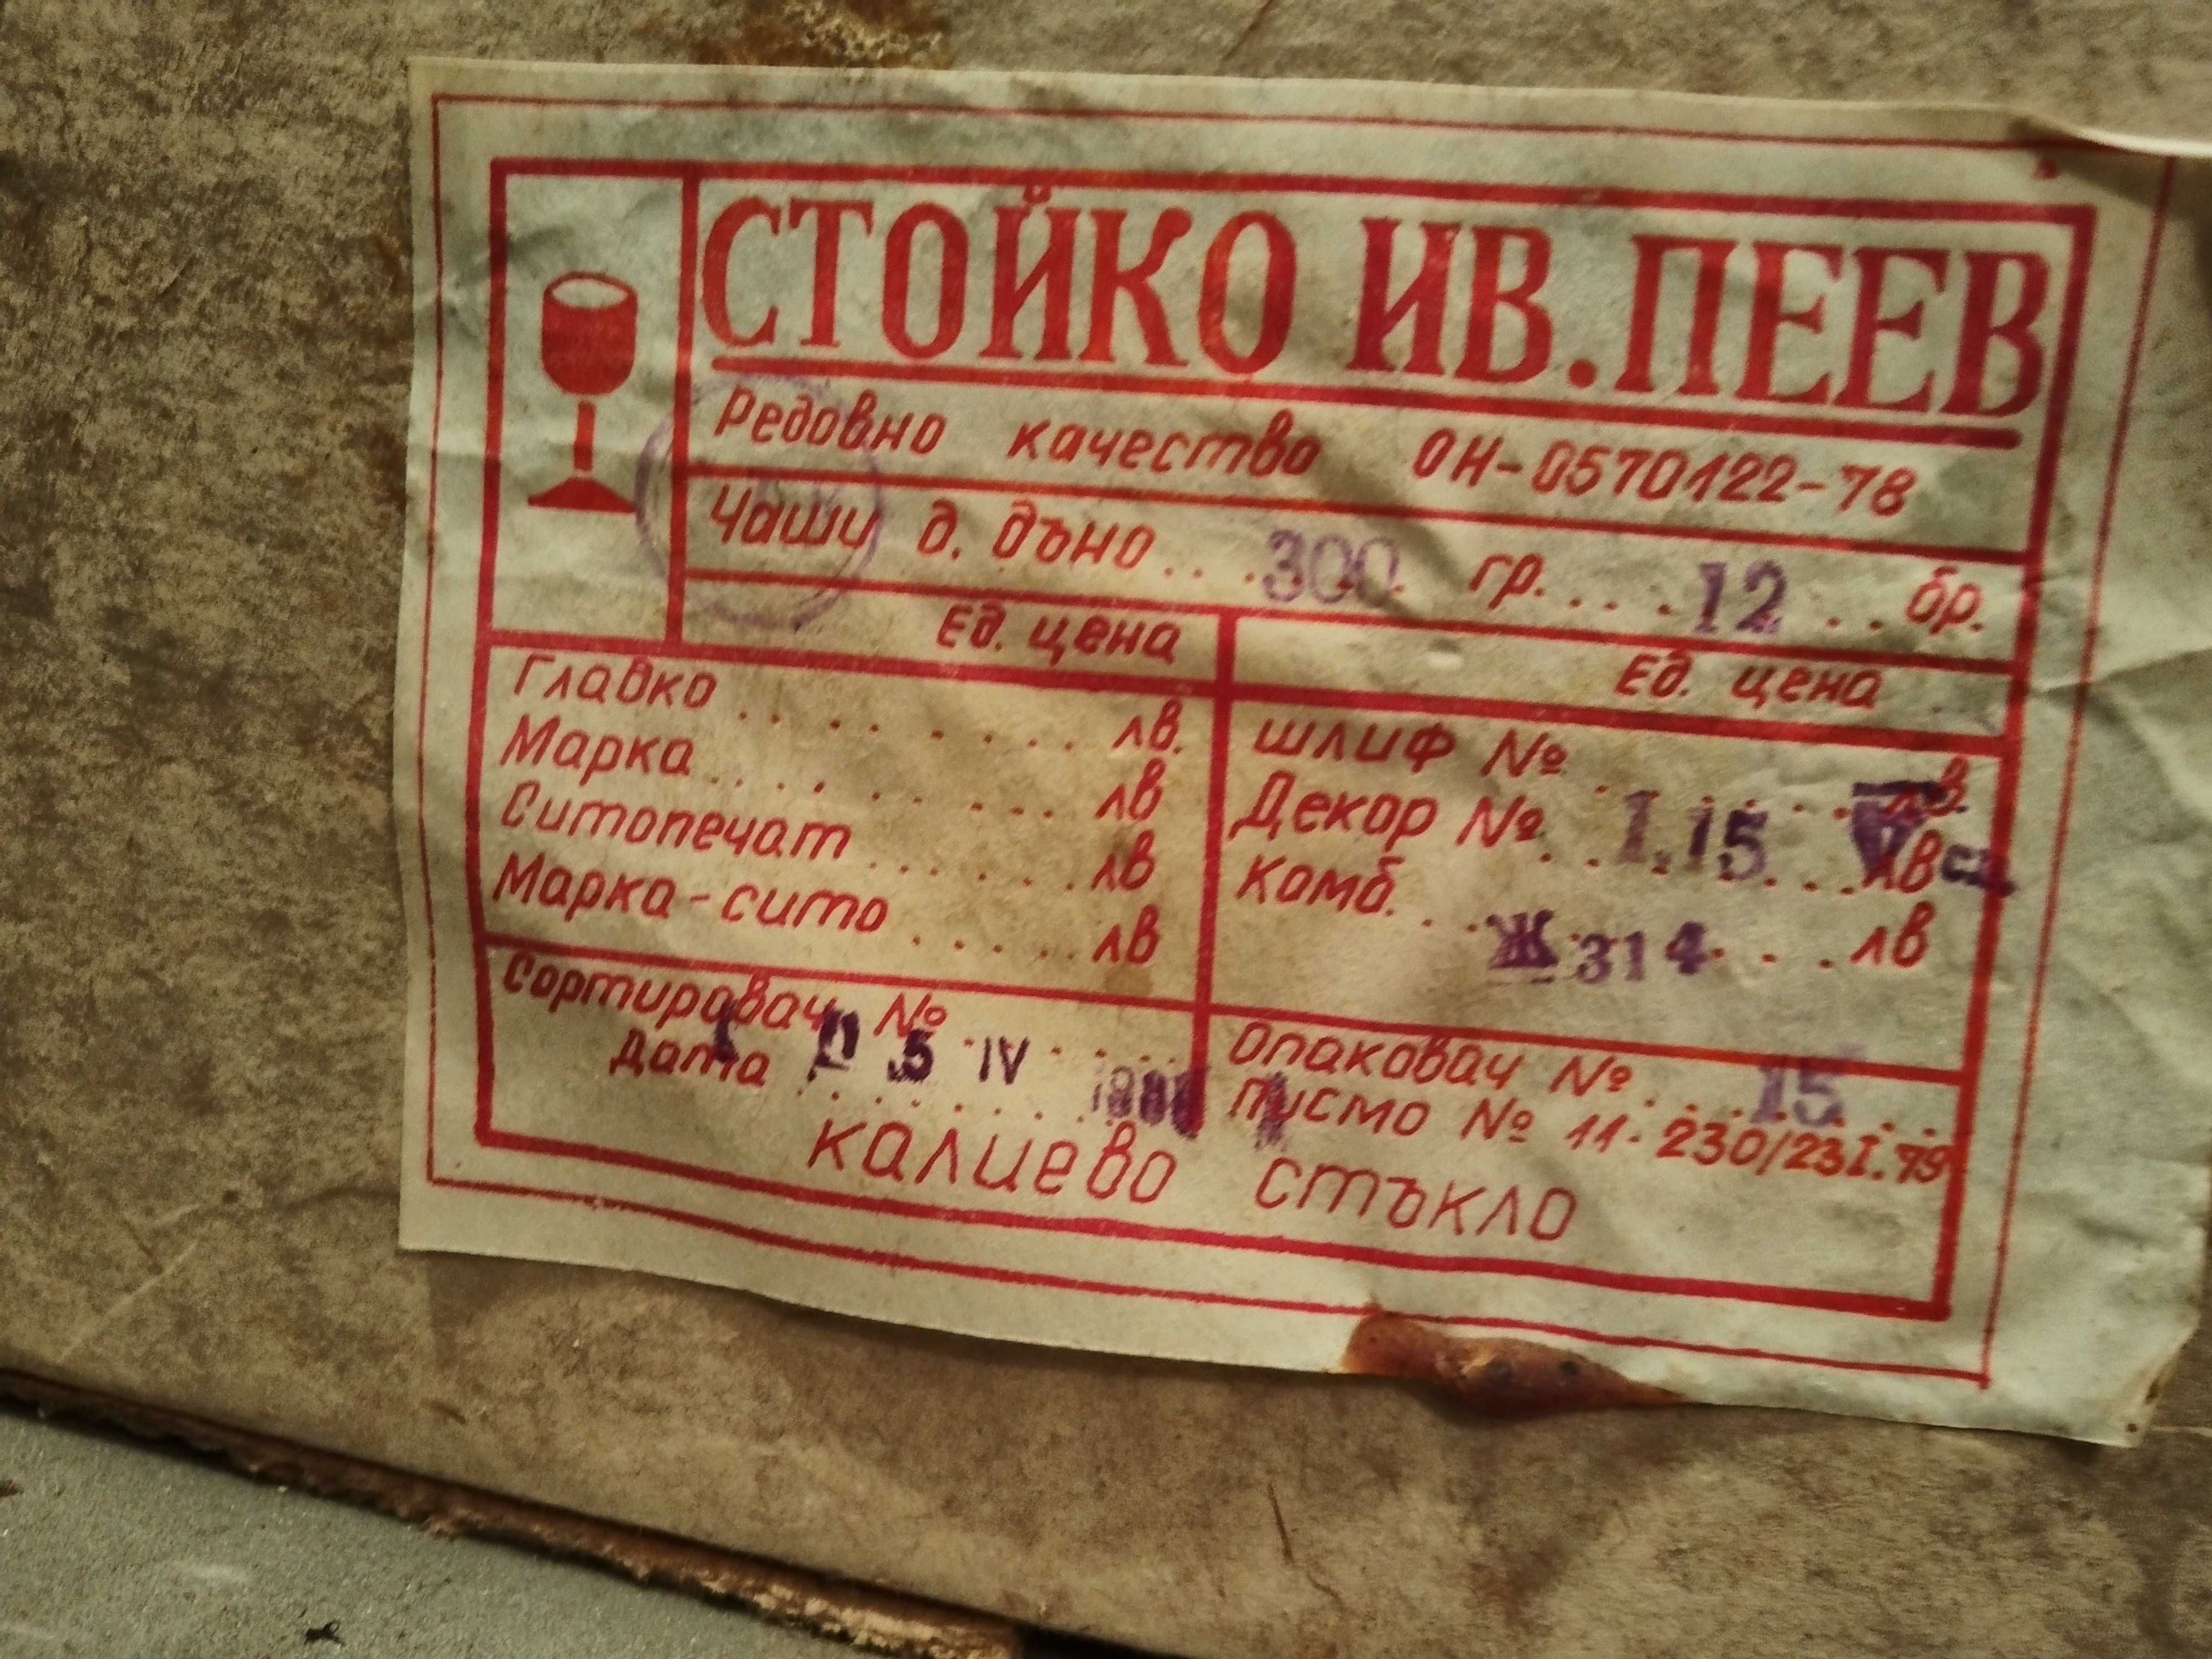 СТОЙКО ИВ. ПЕЕВ
Редовно качество ОН-0570122-78
Чаши д. дъно . . . 300 гр. . . . . 12 . . бр.
Ед. цена
Гладко . . . . . . . . . лв.
Марка . . . . . . . . . лв
Ситопечат . . . . . . . лв
Марка-сито . . . . . лв
Ед. цена
шлиф № . . . . . . . лв.
Декор № . . I.15 . . . лв
Комб. . . . Ж 314 . . . лв
Сортировач № . . . . . .
Дата 5 IV
Опаковач № . . . 15 . . .
писмо № 11-230/23I.79
калиево стъкло